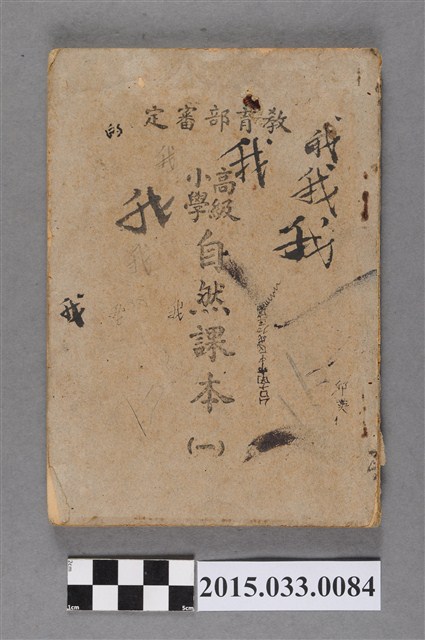 教育部審定
高級
小學
自然課本
(一)
的
我
我
我
我
我
我
我
我
2cm
1cm
5cm
2015.033.0084